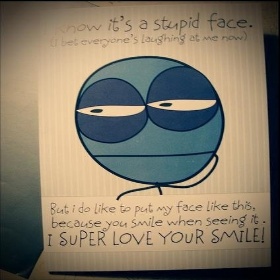 know it's a stupid face.
(I bet everyone's laughing at me now)
But i do like to put my face like this,
because you smile when seeing it.
I SUPER LOVE YOUR SMILE!